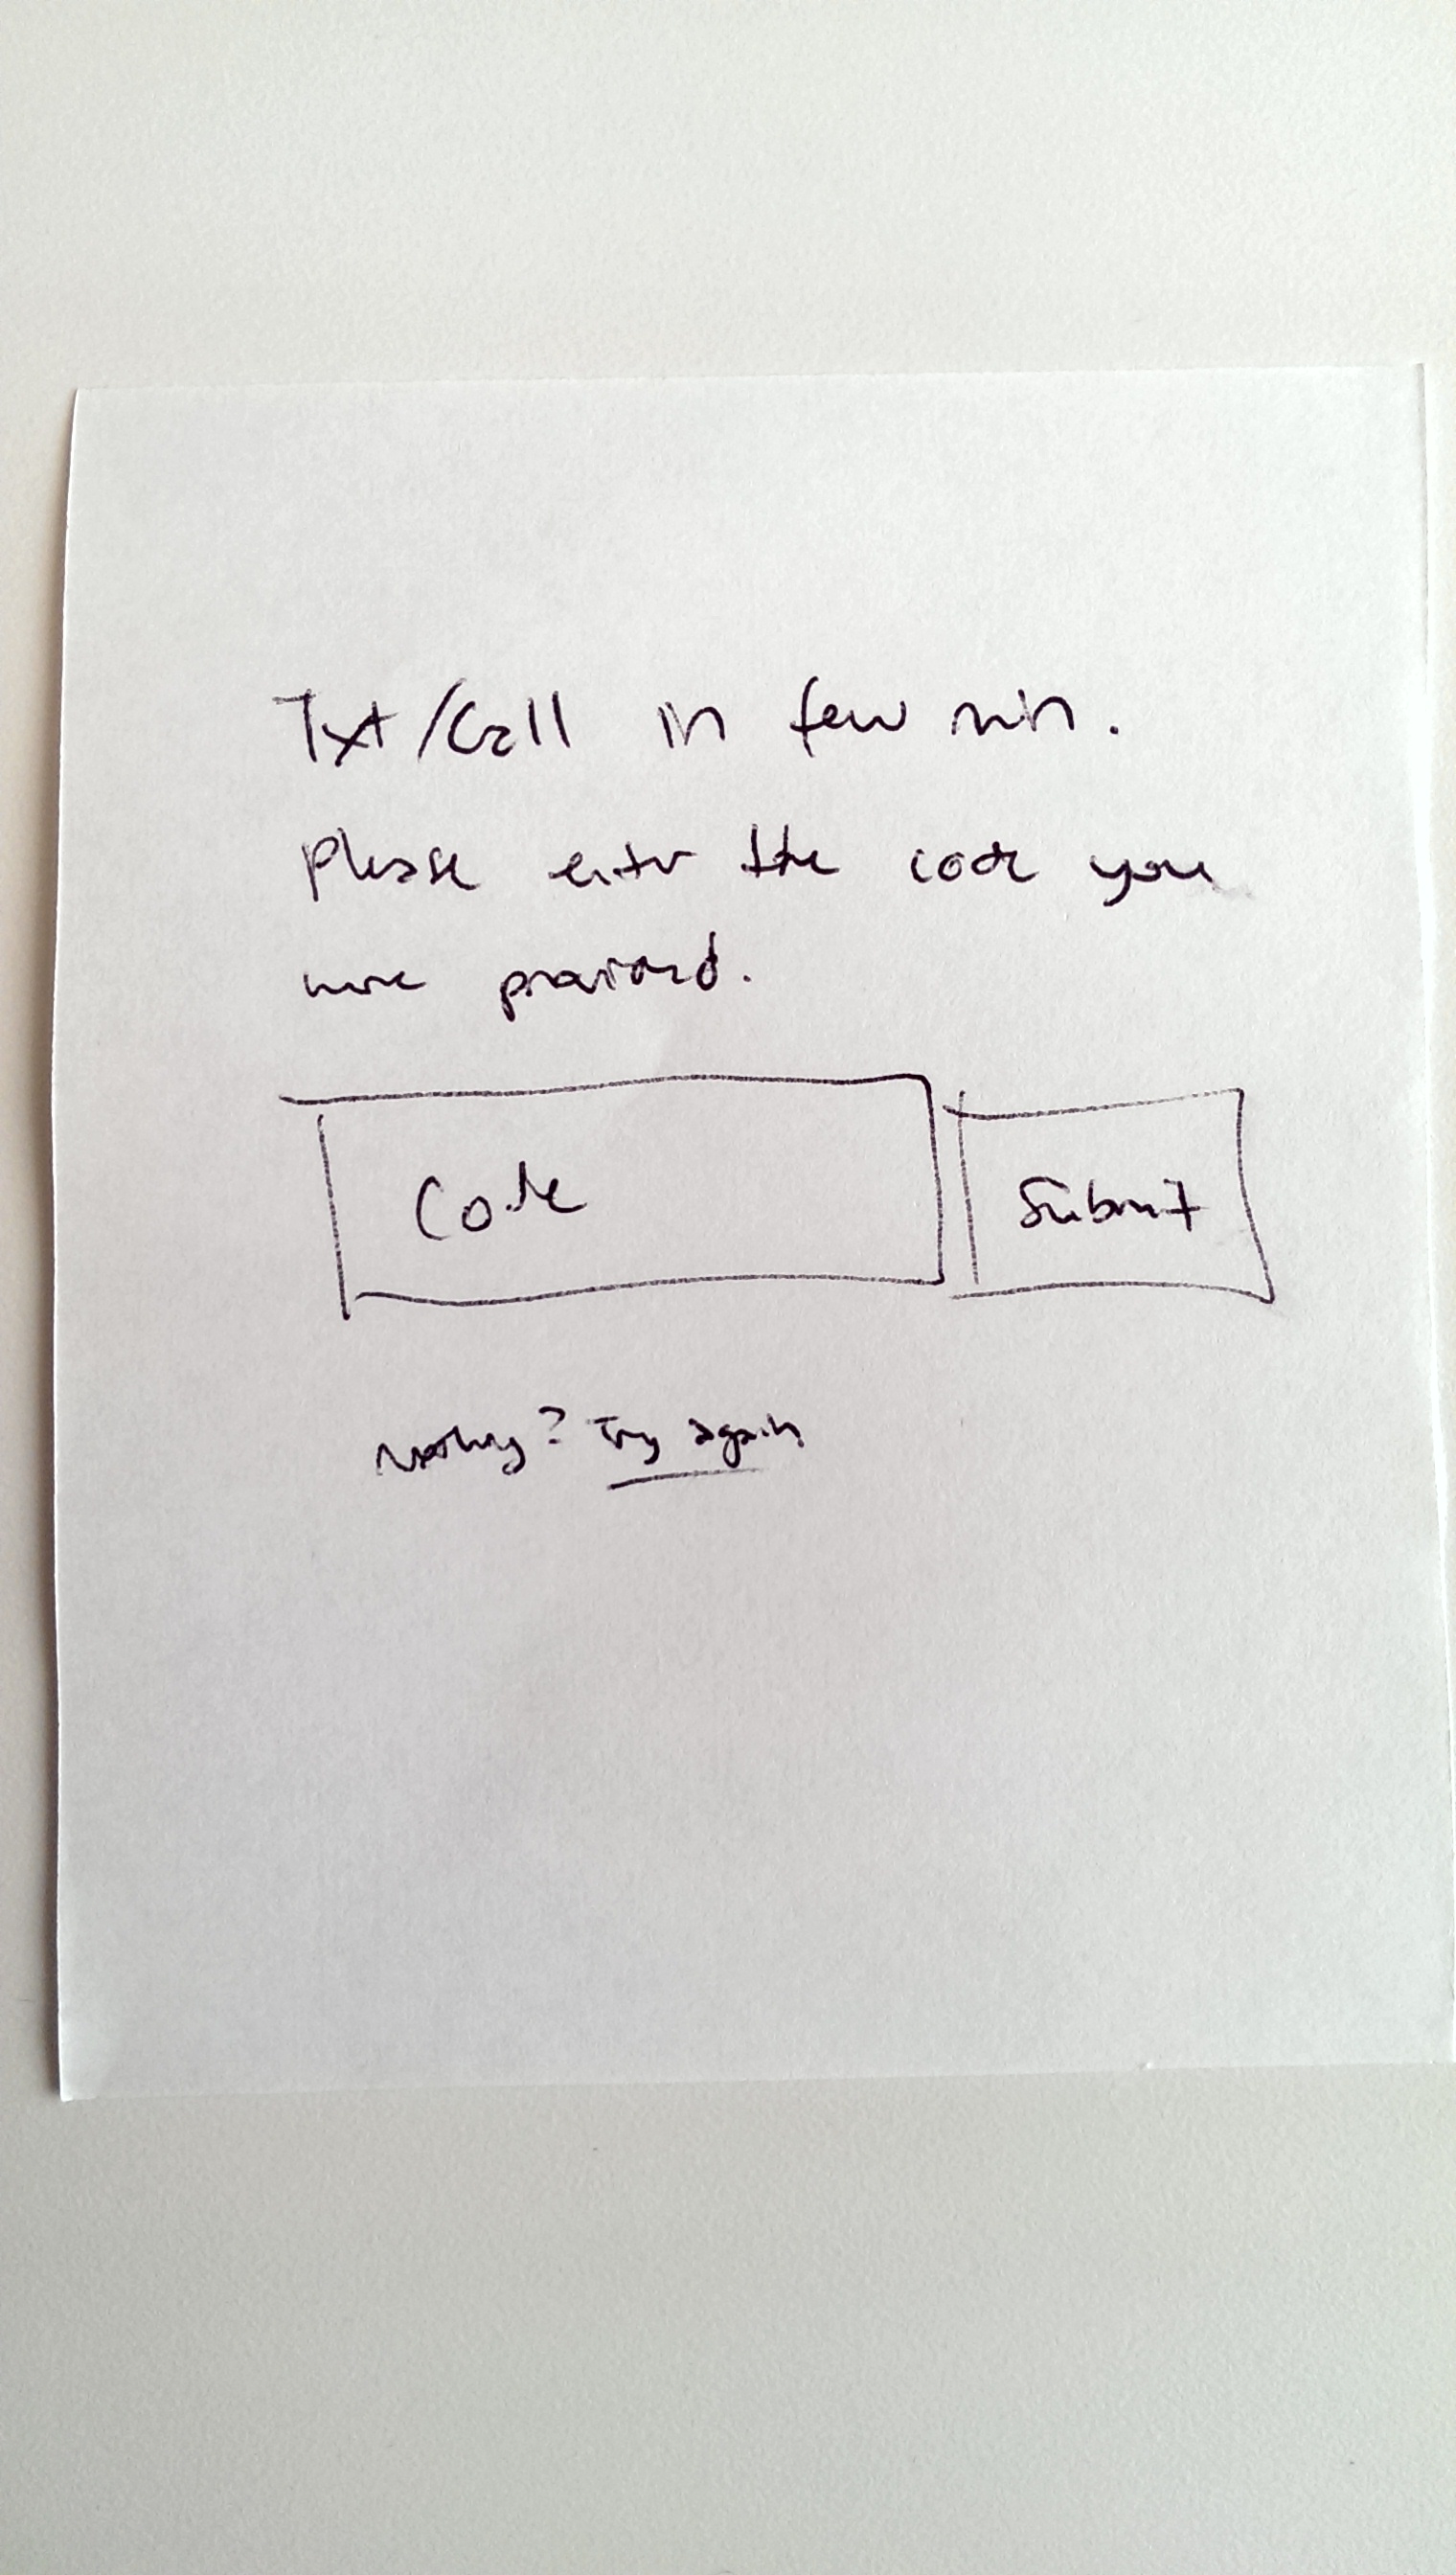 Txt/Call in few min.
Please enter the code you
were provided.
Code
Submit
Nothing? Try again